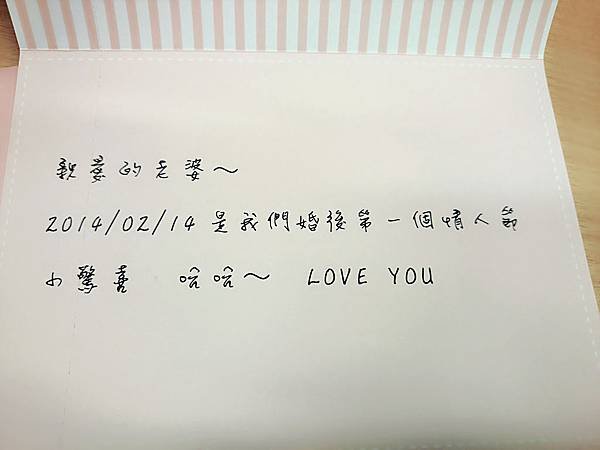 親愛的老婆～
2014/02/14是我們婚後第一個情人節
小驚喜 哈哈～ LOVE YOU